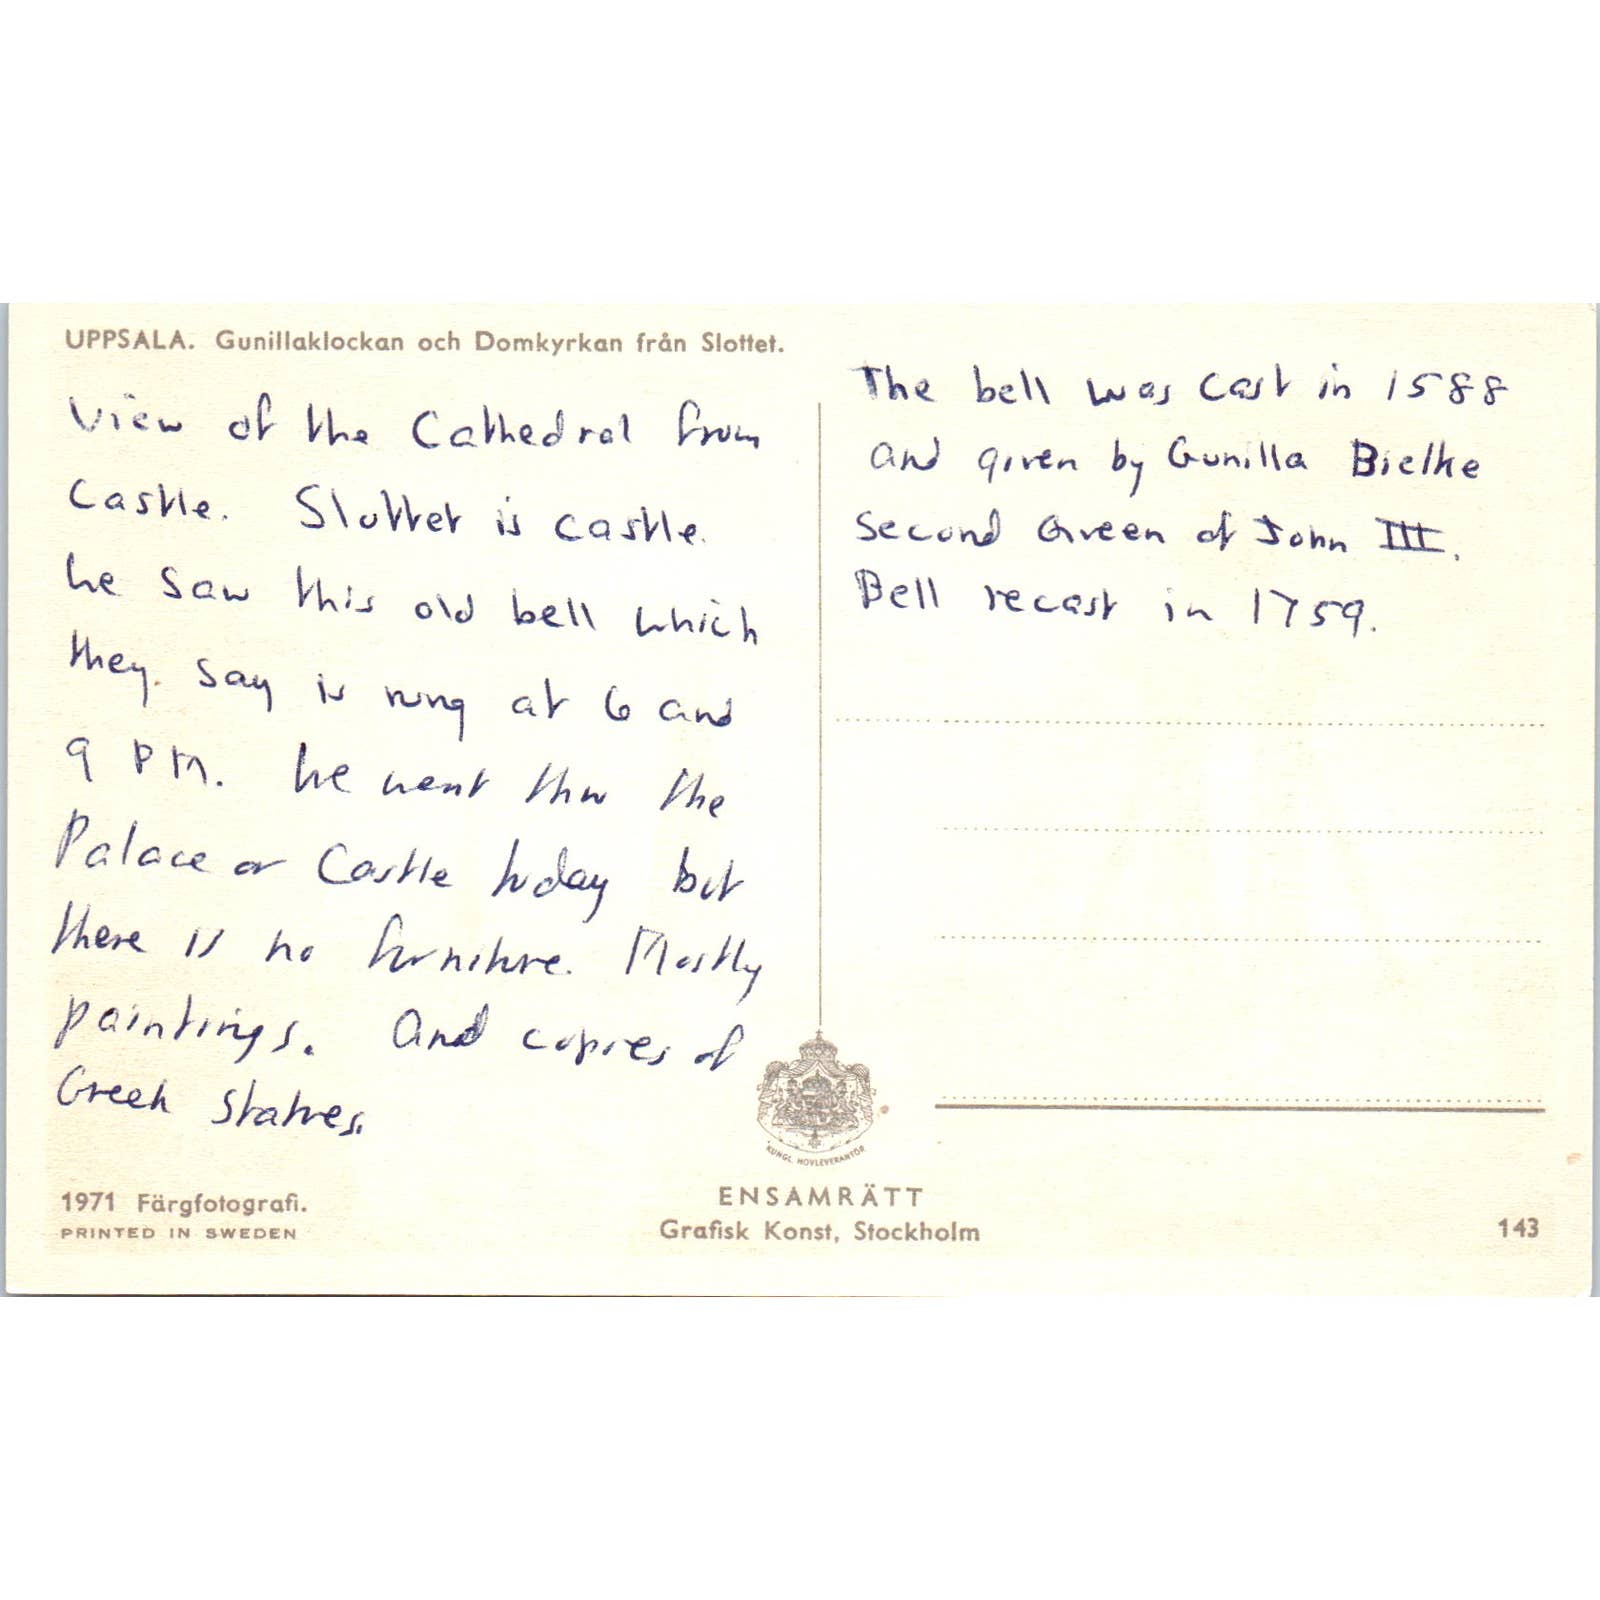 UPPSALA. Gunillaklockan och Domkyrkan från Slottet.
View of the Cathedral from
Castle. Slottet is castle.
We saw this old bell which
they say is rung at 6 and
9 PM. We went thru the
Palace or Castle today but
there is no furniture. Mostly
paintings. And copies of
Greek Statues.
The bell was cast in 1588
and given by Gunilla Bielke
Second Queen of John III.
Bell recast in 1759.
KUNGL. HOVLEVERANTÖR
1971 Färgfotografi.
PRINTED IN SWEDEN
ENSAMRÄTT
Grafisk Konst, Stockholm
143